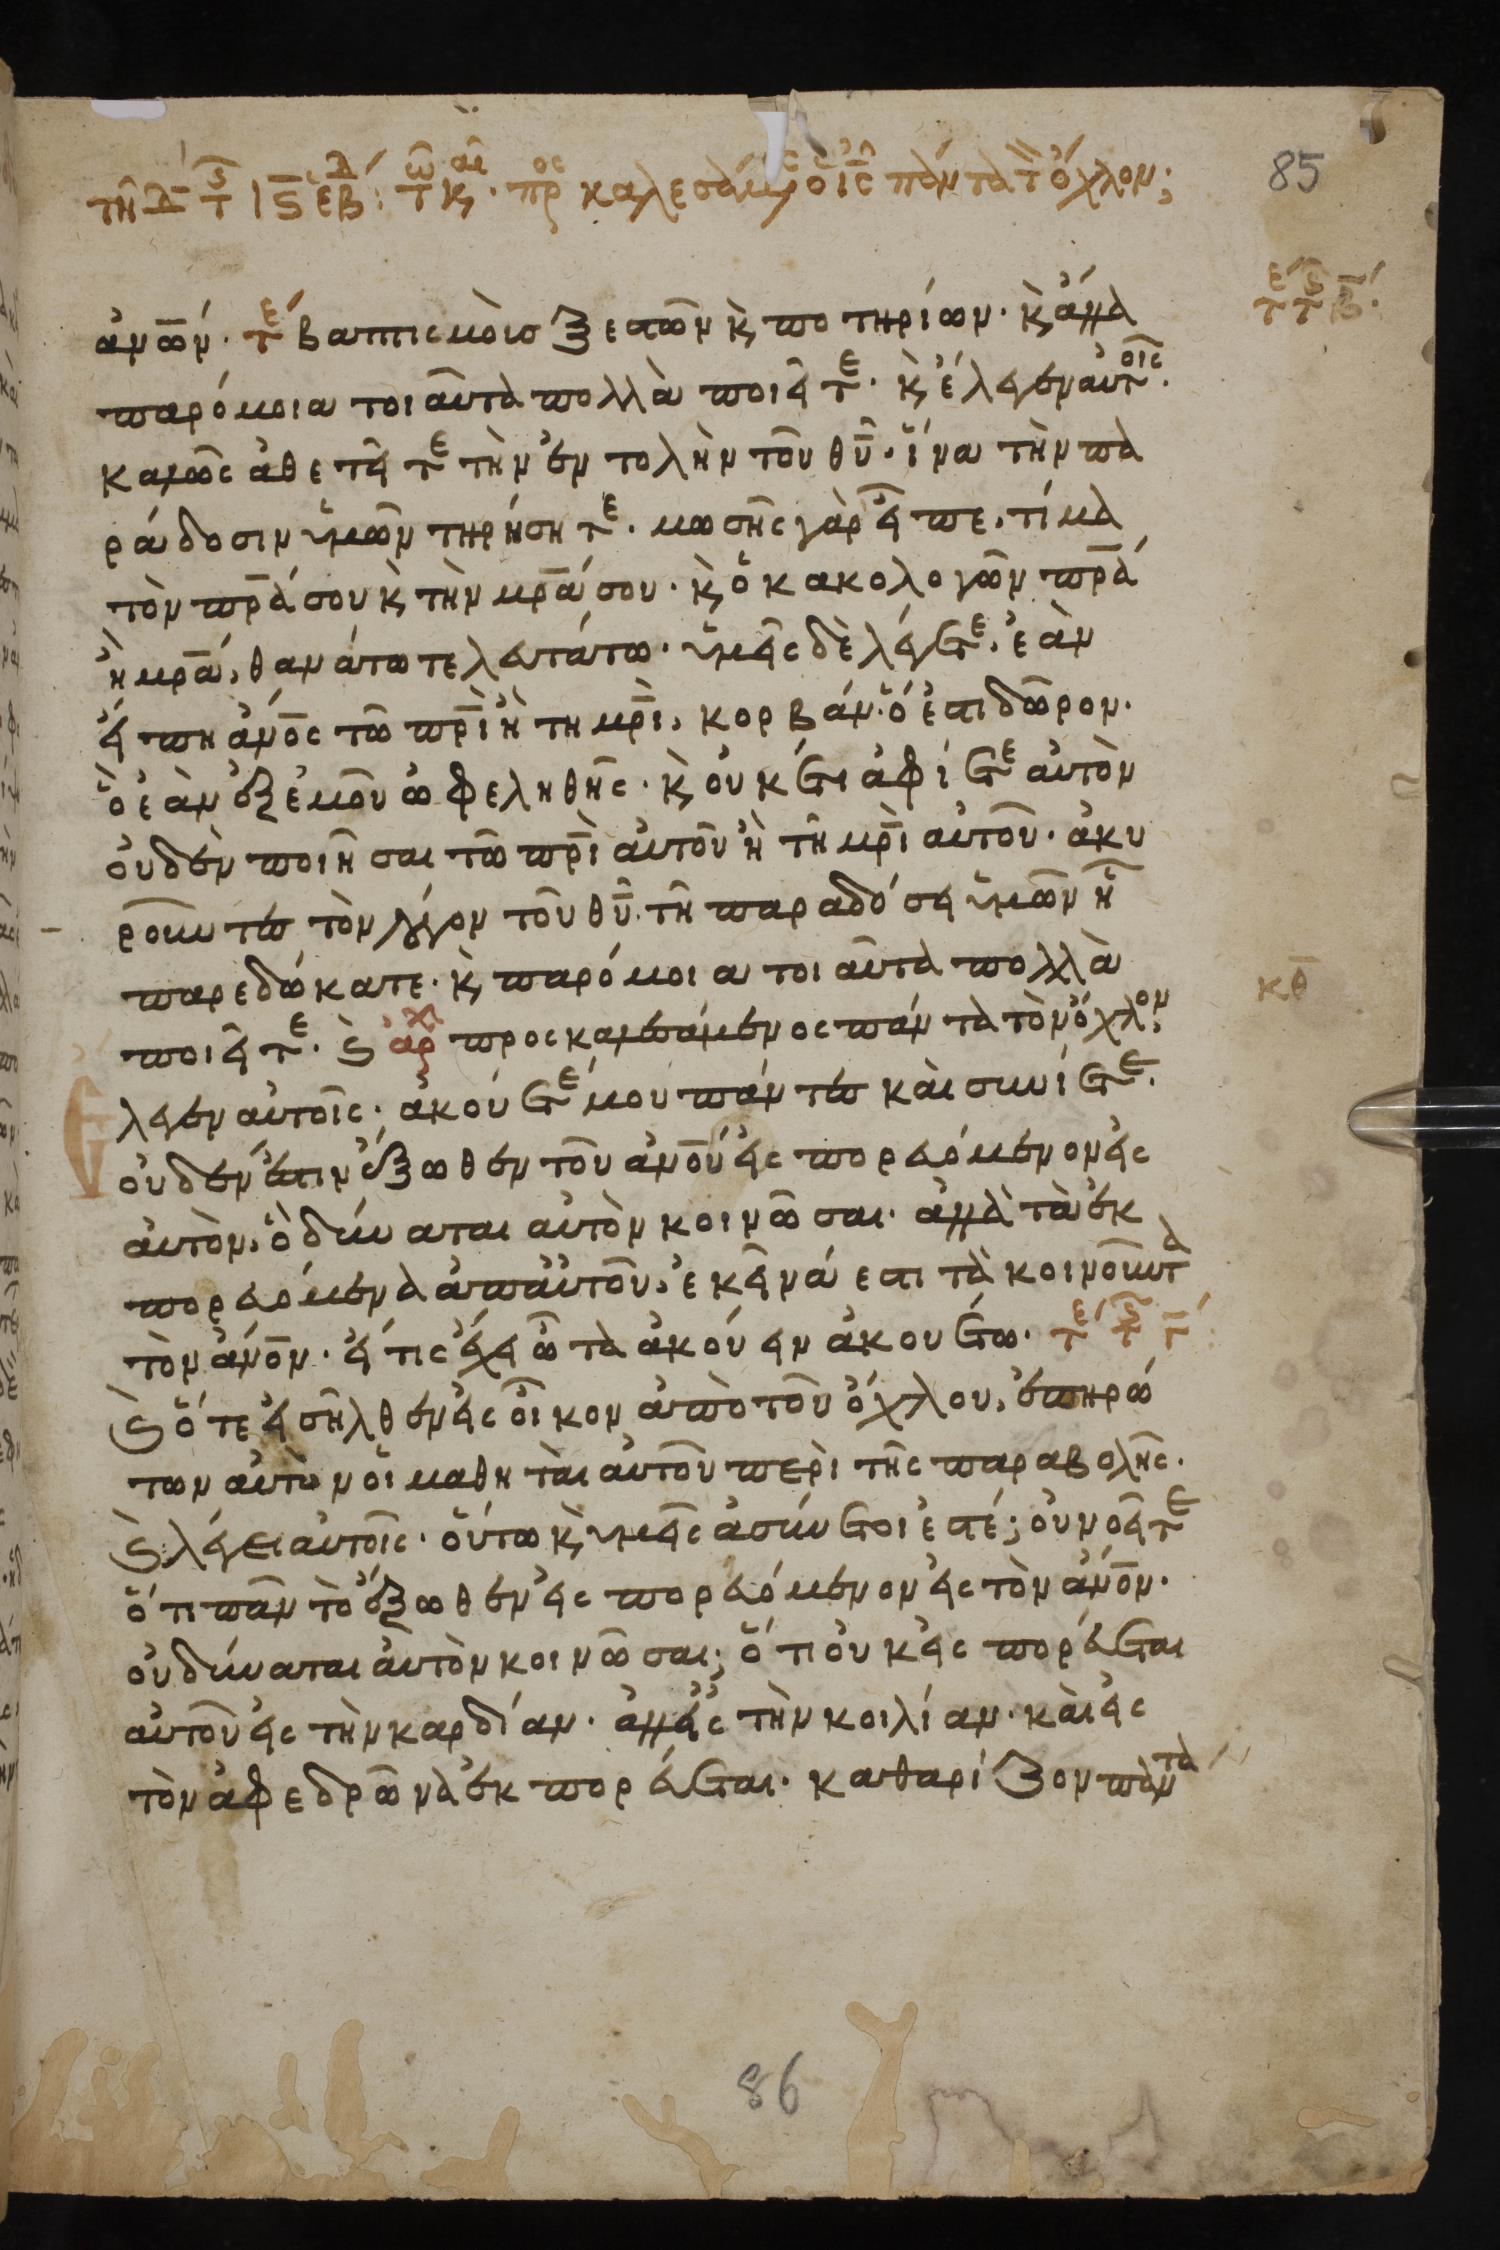 85
τῆ δ τ ιϛ ἑβ: τω καιρ. προσκαλεσάμενος ὁ ις πάντα τ ὄχλον;
ἀνων̅. τέ βαπτισμοὺσ ξεστῶν κ ποτηρίων. κ ἄλλα
παρόμοια τοιαῦτα πολλὰ ποιεῖτε. κ ἔλεγεν αὐτοῖς.
καλῶς ἀθετεῖτε τὴν ἐντολὴν τοῦ θυ̅. ἵνα τὴν πα
ράδοσιν ὑμῶν τηρήσητε. μωσῆς γὰρ εἶπε, τίμα
τὸν πρ̅α σου κ τὴν μρ̅α σου. κ ὁ κακολογῶν πρ̅α
ἢ μρ̅α, θανάτω τελευτάτω. ὑμεῖς δὲ λέγετε, ἐὰν
εἴπη ἀνο̅ς τῶ πρ̅ὶ ἢ τη μρ̅ὶ, κορβάν. ὅ ἐστι δῶρον.
ὃ ἐὰν ἐξ ἐμοῦ ὠφεληθῆς. κ οὐκέτι ἀφίετε αὐτὸν
οὐδὲν ποιῆσαι τῶ πρ̅ὶ αὐτοῦ ἢ τῆ μρ̅ὶ αὐτοῦ. ἀκυ
ροῦντες τὸν λόγον τοῦ θυ̅. τῆ παραδόσει ὑμῶν ἧ
παρεδώκατε. κ παρόμοια τοιαῦτα πολλὰ
κθ̅
ποιεῖτε. κ ἀρχ προσκαλεσάμενος πάντα τὸν ὄχλον,
ἔλεγεν αὐτοῖς. ἀκούετέ μου πάντες καὶ συνίετε.
οὐδέν ἐστιν ἔξωθεν τοῦ ἀνο̅υ εἰσπορευόμενον εἰς
αὐτὸν, ὃ δύναται αὐτὸν κοινῶσαι. ἀλλὰ τὰ ἐκ
πορευόμενα ἀπ' αὐτοῦ, ἐκεῖνά ἐστι τὰ κοινοῦντα
τὸν ἀνο̅ν. εἴ τις ἔχει ὦτα ἀκούειν ἀκουέτω. τέ τ γ̅
κ ὅτε εἰσῆλθεν εἰς οἶκον ἀπὸ τοῦ ὄχλου, ἐπηρώ
των αὐτὸν οἱ μαθηταὶ αὐτοῦ περὶ τῆς παραβολῆς.
κ λέγει αὐτοῖς. οὕτω κ ὑμεῖς ἀσύνετοι ἐστέ; οὐ νοεῖτε
ὅτι πᾶν τὸ ἔξωθεν εἰσπορευόμενον εἰς τὸν ἀνο̅ν.
οὐ δύναται αὐτὸν κοινῶσαι; ὅτι οὐκ εἰσπορεύεται
αὐτοῦ εἰς τὴν καρδίαν. ἀλλ' εἰς τὴν κοιλίαν. καὶ εἰς
τὸν ἀφεδρῶνα ἐκπορεύεται. καθαρίζον πάντα
86